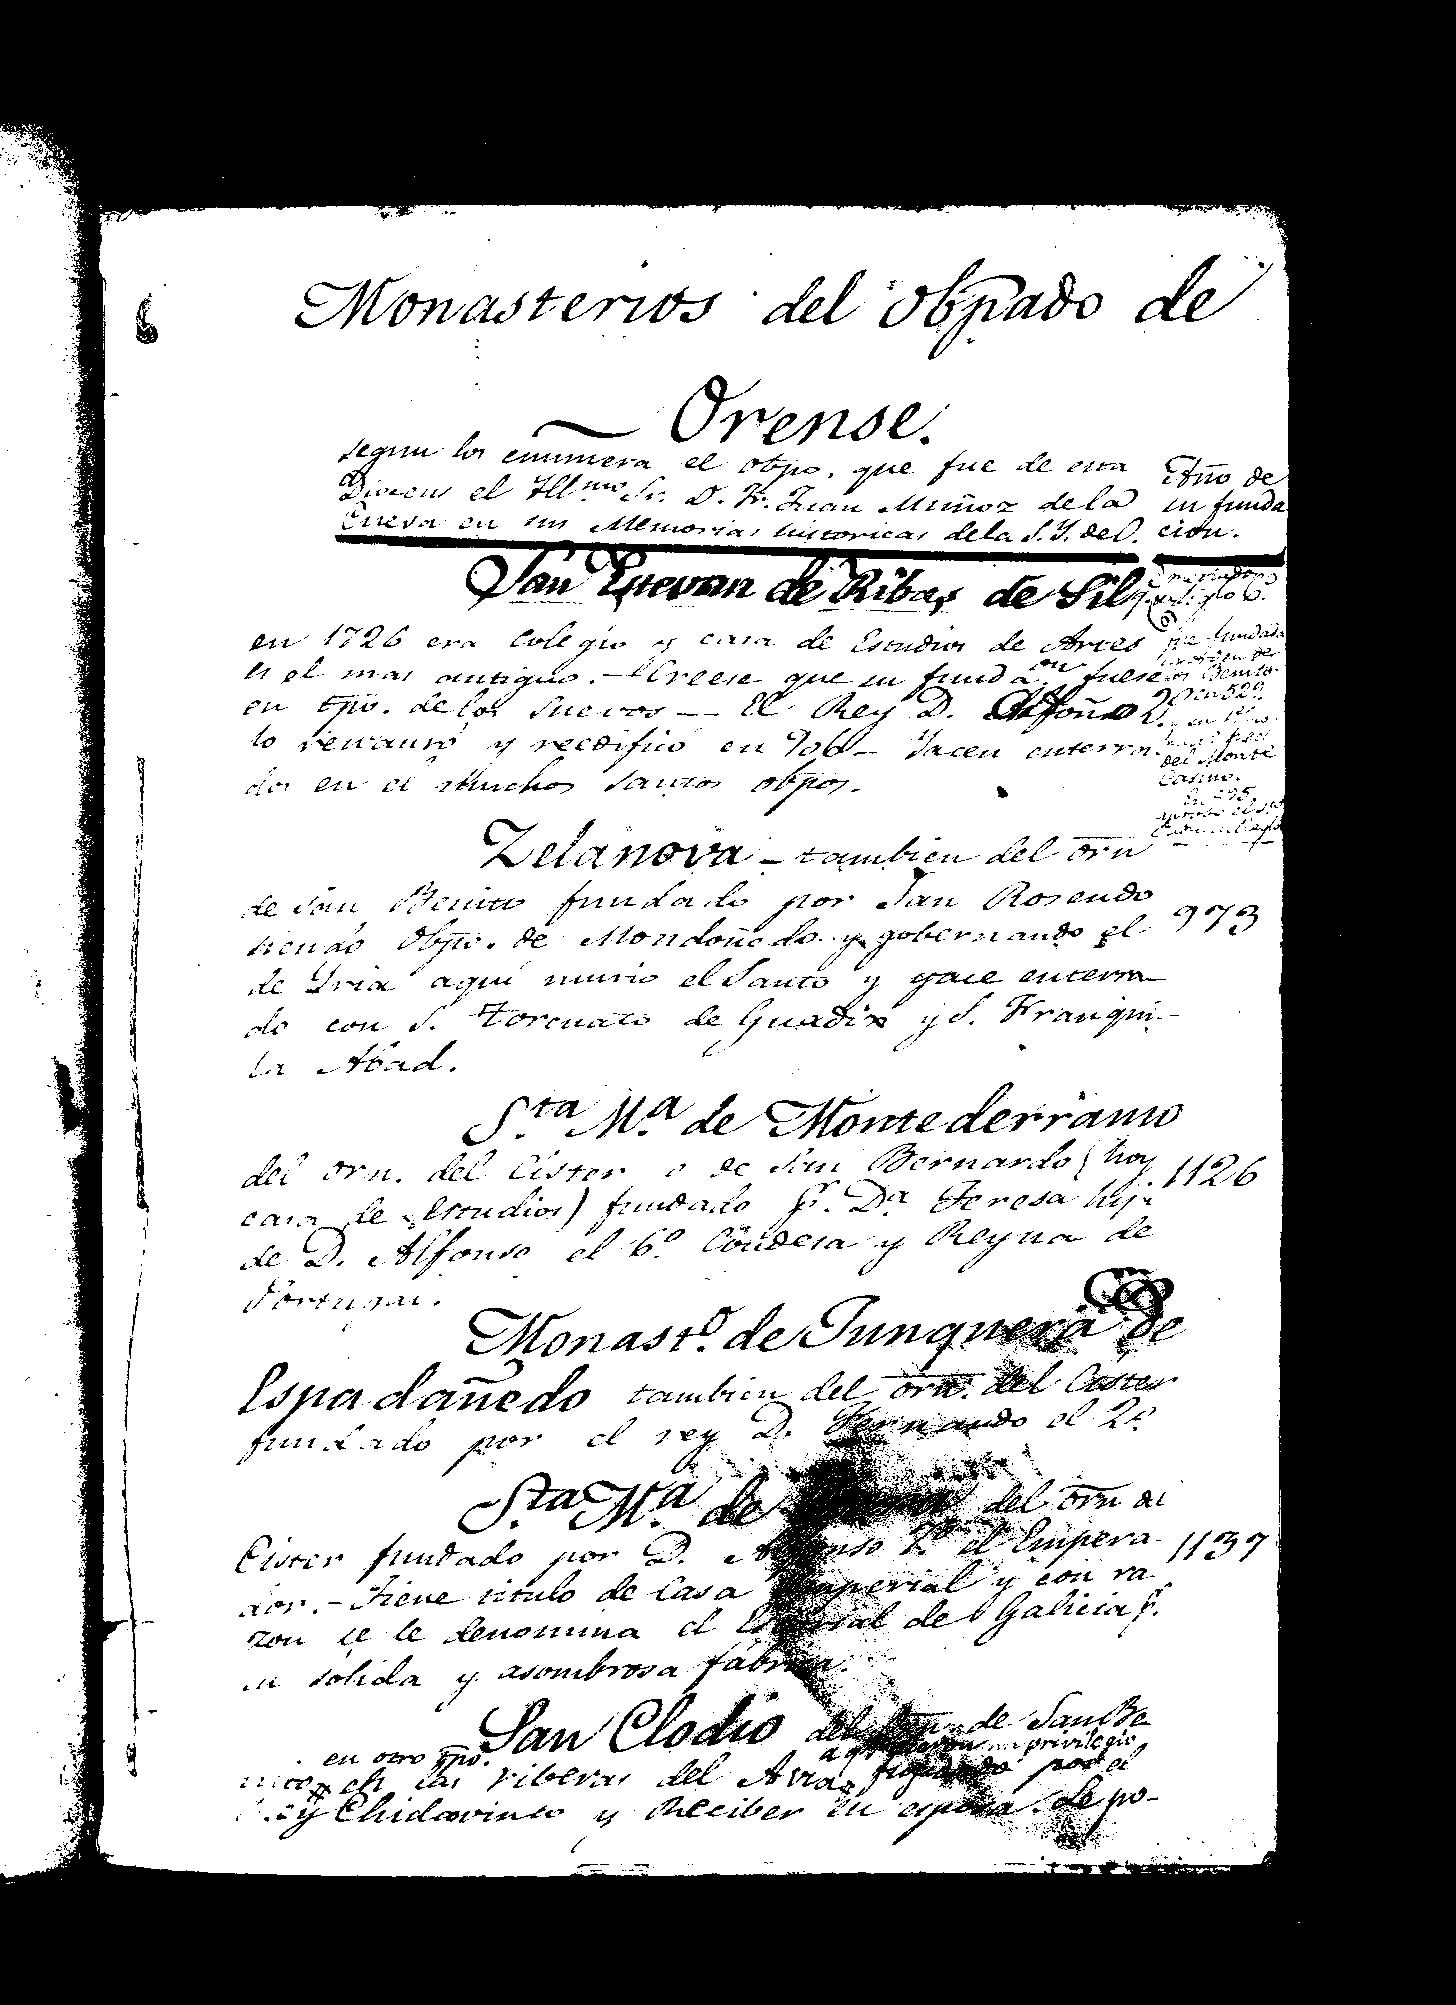 Monasterios del obp̄ado de
Orense.
segun los enumera el obpo. que fue de esta
Diocesis el Illmo. Sr. D. Fr. Juan Muñoz de la
Cueva en sus Memorias historicas de la S. Y. de O.
Año de
su funda
cion.
San Estevan de Ribas de Sil
en 1726 era Colegio y casa de Estudios de Artes
es el mas antiguo. - Creese que su fundaon. fuese
en tpo. de los Suevos — El Rey D. Alfonso 2º.
lo restauró y reedificó en 906 - Yacen enterra
dos en el Muchos Santos obpos.
fue fundada
la orden de
Sn Benito
en 529
del Monte
Casino.
Zelanova - tambien del orn
de San Benito fundado por San Rosendo
siendo Obpo. de Mondoñedo y gobernando el
de Yria aquí murio el Santo y yace enterra
do con S. Torcuato de Guadix y S. Franqui-
la Abad.
973
Sta. Ma. de Montederramo
del orn. del Cister o de San Bernardo (hoy
casa de Estudios) fundado pr. Da. Teresa hija
de D. Alfonso el 6º Condesa y Reyna de
Portugal.
1126
Monasto. de Junquera de
Espadañedo tambien del orn. del Cister
fundado por el rey D. Fernando el 2º.
Sta. Ma. de del orn del
Cister fundado por D. Alfonso 7º el Empera
dor. - Tiene titulo de Casa Ymperial y con ra
zon se le denomina el Escorial de Galicia pr.
su solida y asombrosa fabrica.
1137
San Clodio del orn. de San Be
en otro tpo. privilegio
nito en las riberas del Avia por el
Rey Chidasvinto y Reciber su esposa. Se po-